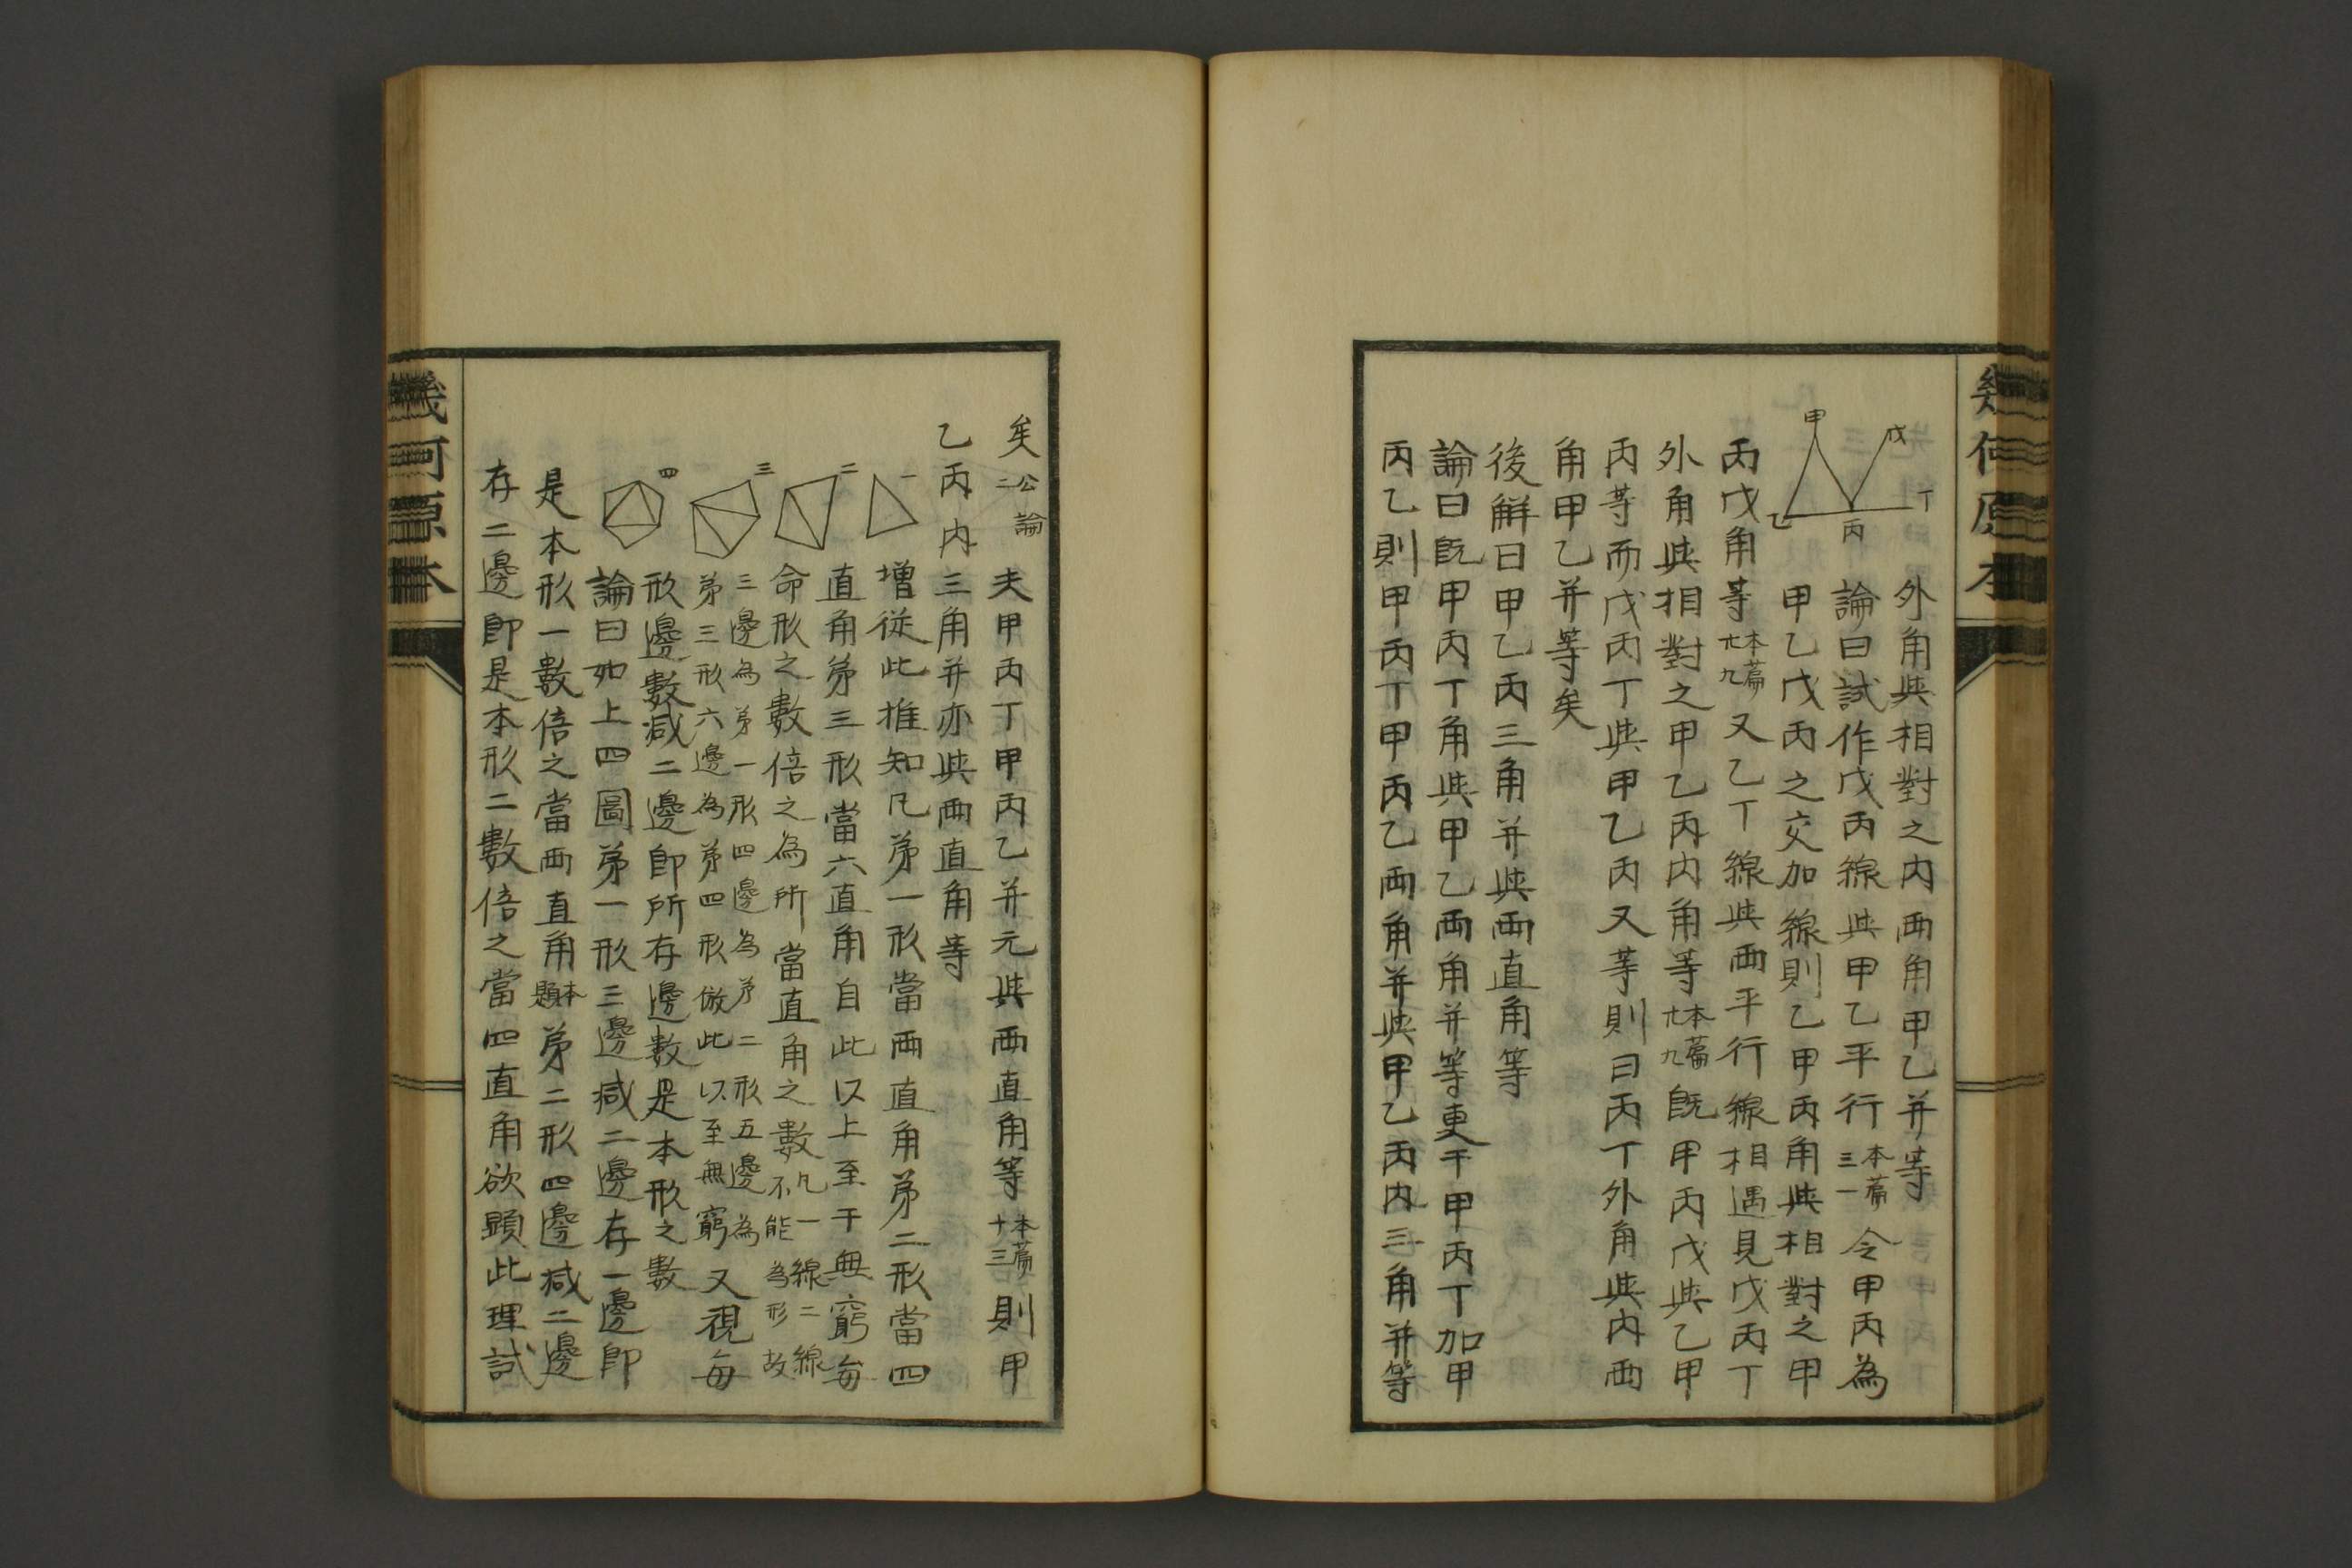 幾何原本
甲
戊
乙
丙
丁
外角與相對之內兩角甲乙并等
論曰試作戊丙線與甲乙平行本篇三一令甲丙為
甲乙戊丙之交加線則乙甲丙角與相對之甲
丙戊角等本篇廿九又乙丁線與兩平行線相遇見戊丙丁
外角與相對之甲乙丙內角等本篇廿九既甲丙戊與乙甲
丙等而戊丙丁與甲乙丙又等則曰丙丁外角與內兩
角甲乙并等矣
後解曰甲乙丙三角并與兩直角等
論曰既甲丙丁角與甲乙兩角并等更于甲丙丁加甲
丙乙則甲丙丁甲丙乙兩角并與甲乙丙內三角并等
矣公論二夫甲丙丁甲丙乙并元與兩直角等本篇十三則甲
乙丙內三角并亦與兩直角等
一
二
三
四
增從此推知凡第一形當兩直角第二形當四
直角第三形當六直角自此以上至于無窮每
命形之數倍之為所當直角之數凡一線二線不能為形故
三邊為第一形四邊為第二形五邊為
第三形六邊為第四形倣此以至無窮又視每
形邊數減二邊即所存邊數是本形之數
論曰如上四圖第一形三邊減二邊存一邊即
是本形一數倍之當兩直角本題第二形四邊減二邊
存二邊即是本形二數倍之當四直角欲顯此理試
幾何原本